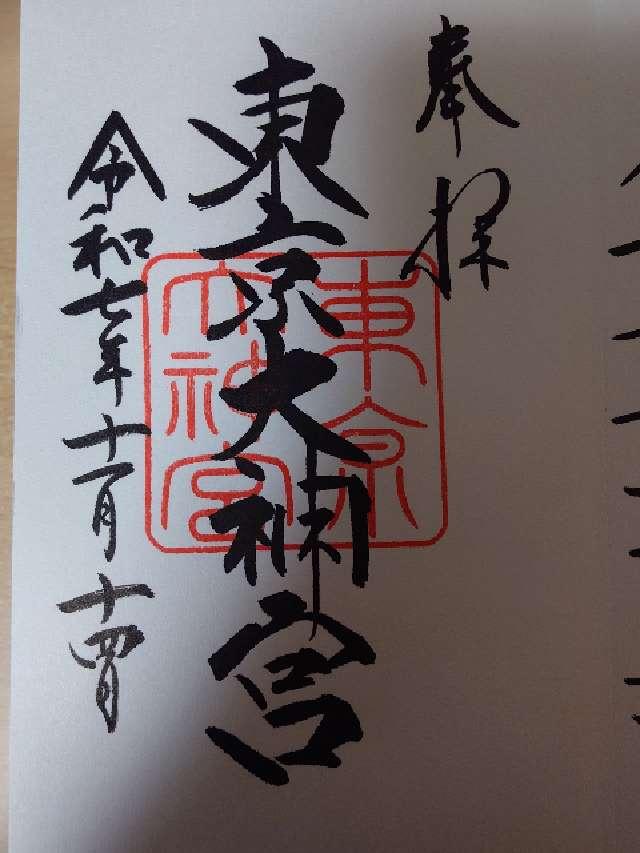 奉拝
東京大神宮
東京
大神宮
令和七年十一月十四日